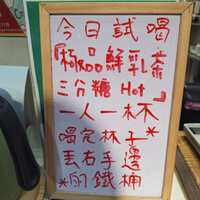 今日試喝
『極品鮮乳茶
三分糖 Hot』
一人一杯
喝完杯子
丟右手邊
*的鐵桶*